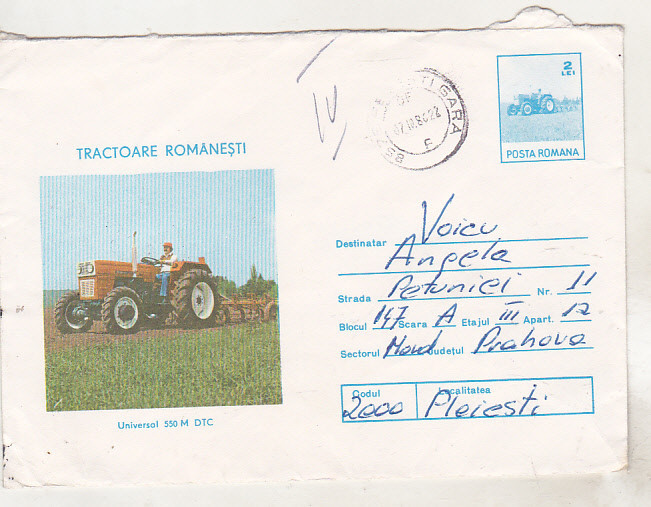 TRACTOARE ROMÂNEȘTI
Universal 550 M DTC
IV
2
LEI
POSTA ROMANA
GARA
F
Destinatar Voicu
Angela
Strada Petuniei Nr. 11
Blocul 147 Scara A Etajul III Apart. 12
Sectorul Nord Județul Prahova
Codul Localitatea
2000 Ploiești